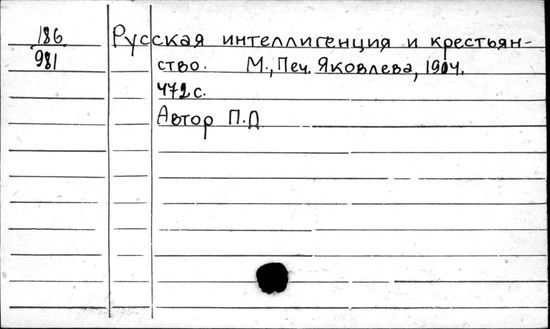 186
981
Русская интеллигенция и крестьян-
ство. М., Печ. Яковлева, 1904.
472 с.
Автор П.Д